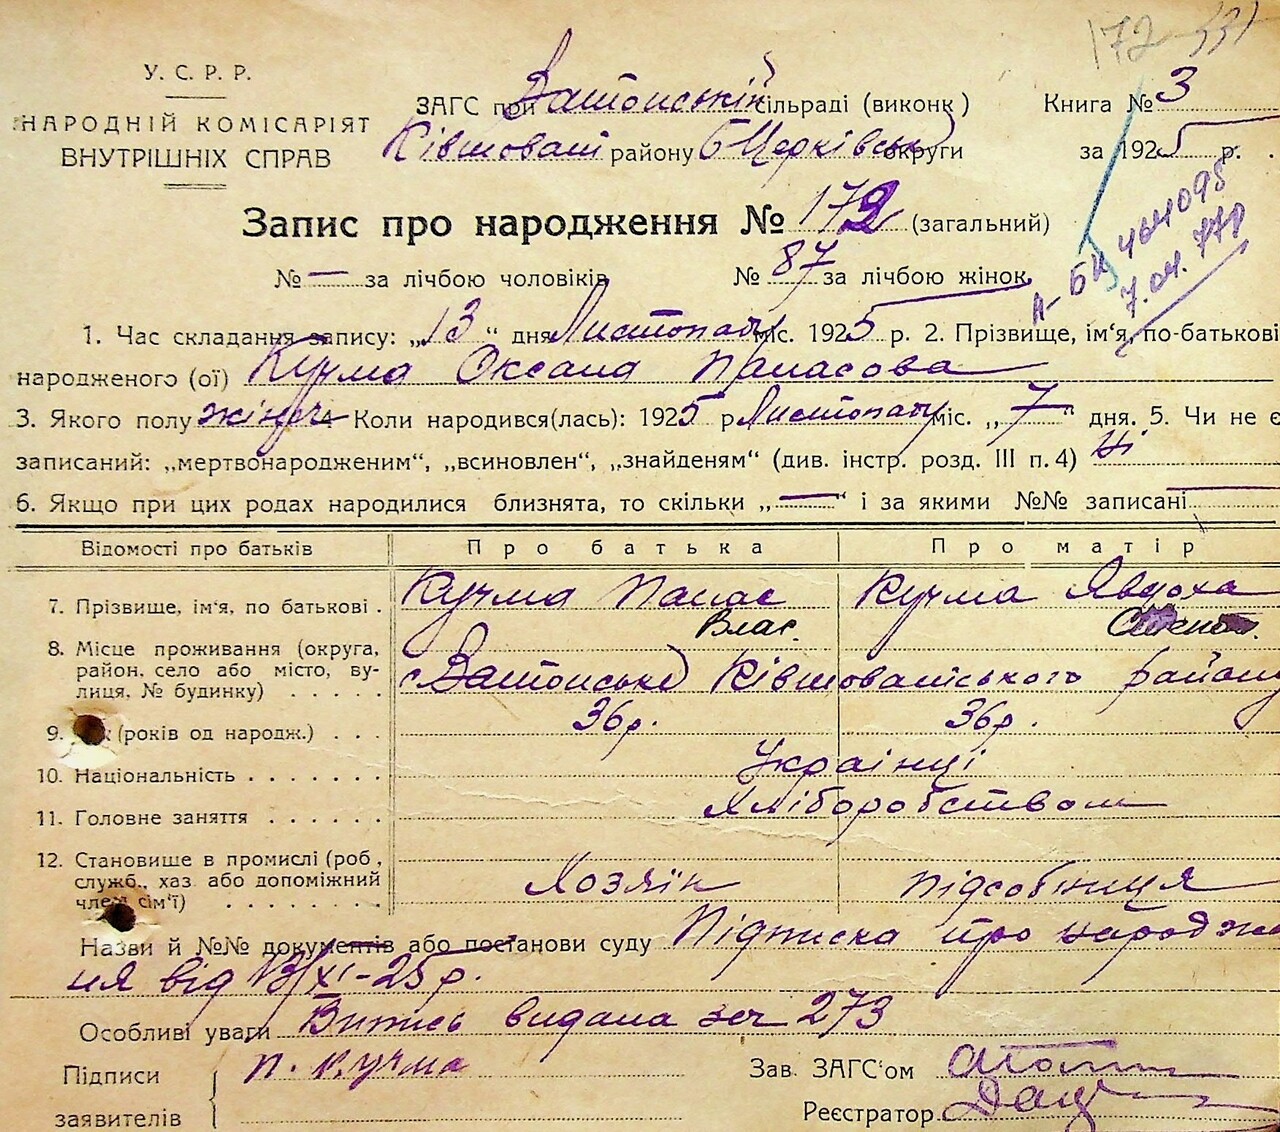 172
У. С. Р. Р.
НАРОДНІЙ КОМІСАРІЯТ
ВНУТРІШНІХ СПРАВ
ЗАГС при сільраді (виконк)
Книга № 3
району БЦерківськ округи
за 1925 р.
Запис про народження № 172 (загальний)
№ — за лічбою чоловіків № 87 за лічбою жінок
А-БК 464098
7.04.77р
1. Час складання запису: „13“ дня Листопаду міс. 1925 р. 2. Прізвище, ім'я, по-батькові
народженого (ої) Кучма Оксана Панасова
3. Якого полу жіноч 4 Коли народився(лась): 1925 р Листопаду міс. „7“ дня. 5. Чи не є
записаний: „мертвонародженим“, „всиновлен“, „знайденям“ (див. інстр. розд. III п. 4) Ні
6. Якщо при цих родах народилися близнята, то скільки „—“ і за якими №№ записані
Відомості про батьків Про батька Про матір
7. Прізвище, ім'я, по батькові . Кучма Панас Кучма Явдоха
Влас.
8. Місце проживання (округа,
район, село або місто, ву-
лиця, № будинку) . . . . . с Ківшоватського району
9. (років од народж.) . . . 36р. 36р.
10. Національність . . . . . . . Українці
11. Головне заняття . . . . . . Хліборобством
12. Становище в промислі (роб,
служб., хаз або допоміжний
член сім'ї) . . . . . . . . Хозяїн підсобниця
Назви й №№ документів або постанови суду Підписка про народжен
ня від 13/XI-25р.
Особливі уваги Випись видана за № 273
Підписи
заявителів
П. Кучма
Зав. ЗАГС'ом
Реєстратор